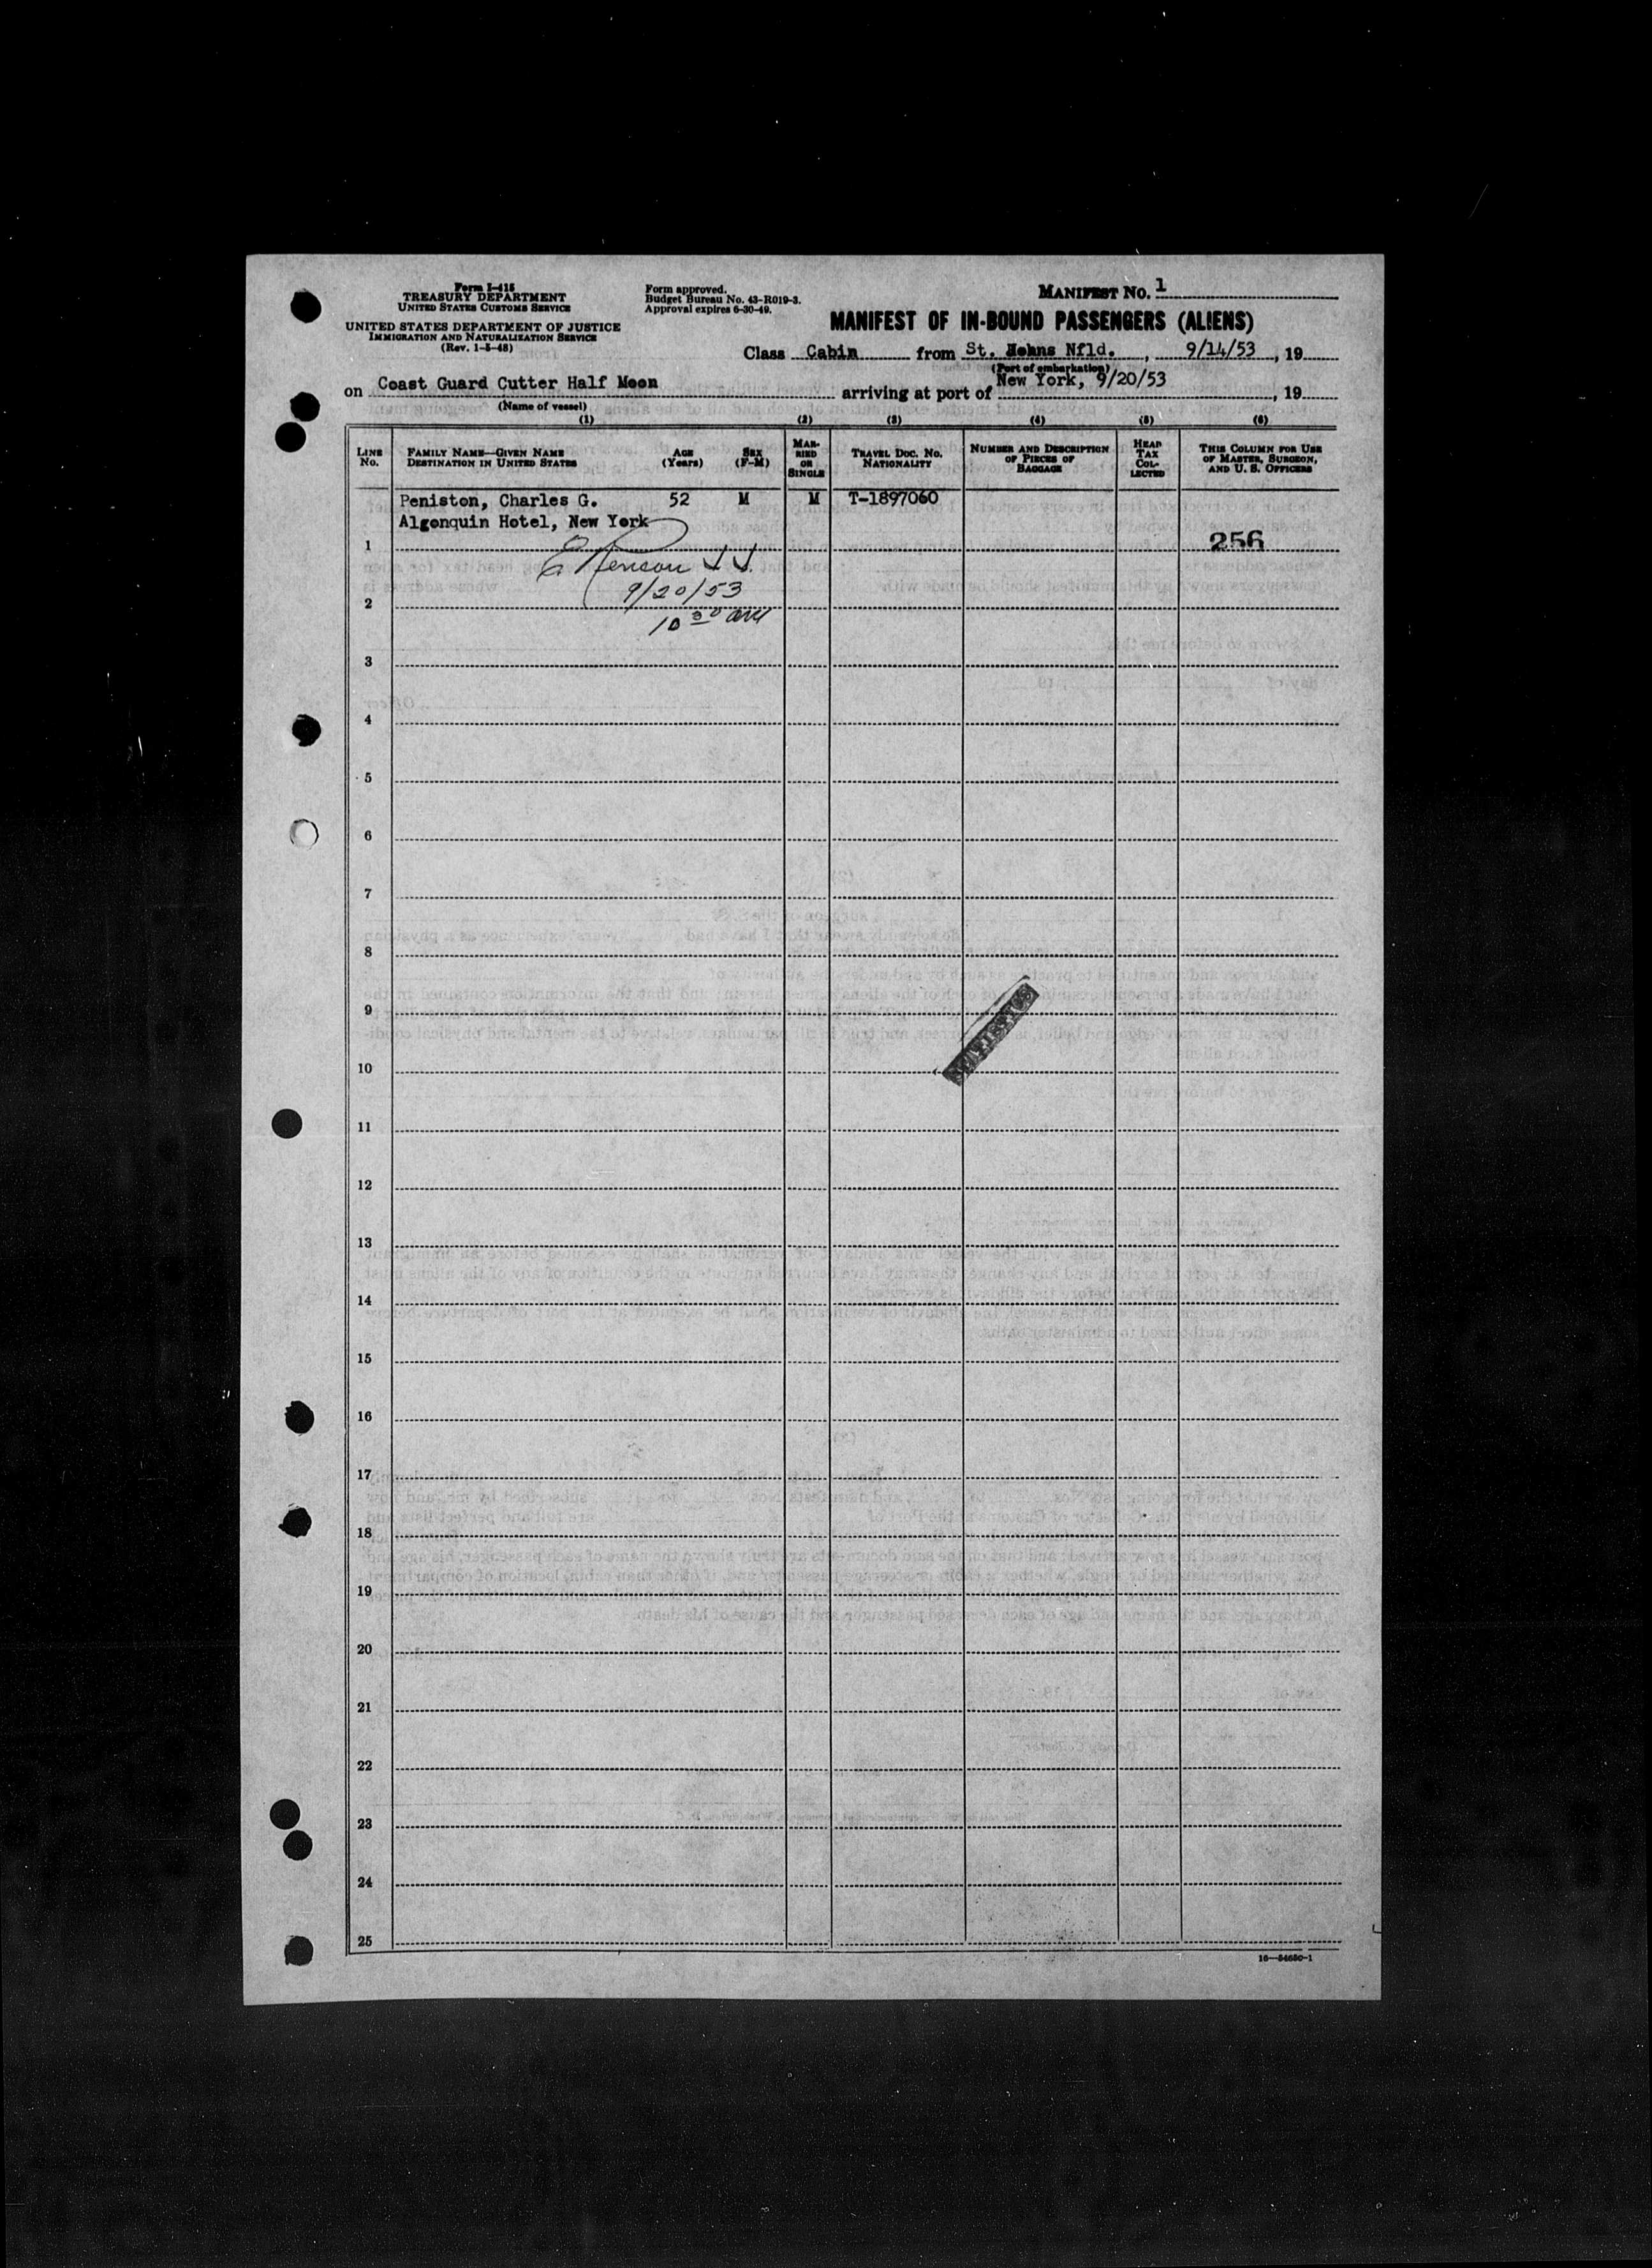 Form I-415
TREASURY DEPARTMENT
UNITED STATES CUSTOMS SERVICE
UNITED STATES DEPARTMENT OF JUSTICE
IMMIGRATION AND NATURALIZATION SERVICE
(Rev. 1-5-48)
Form approved.
Budget Bureau No. 43-R019-3.
Approval expires 6-30-49.
MANIFEST No. 1
MANIFEST OF IN-BOUND PASSENGERS (ALIENS)
Class Cabin from St. Johns Nfld. , 9/14/53 , 19
(Port of embarkation)
on Coast Guard Cutter Half Moon arriving at port of New York, 9/20/53 , 19
(Name of vessel)
(1) (2) (3) (4) (5) (6)
LINE No. FAMILY NAME—GIVEN NAME DESTINATION IN UNITED STATES AGE (Years) SEX (F-M) MARRIED OR SINGLE TRAVEL DOC. No. NATIONALITY NUMBER AND DESCRIPTION OF PIECES OF BAGGAGE HEAD TAX COLLECTED THIS COLUMN FOR USE OF MASTER, SURGEON, AND U. S. OFFICERS
Peniston, Charles G. 52 M M T-1897060
Algonquin Hotel, New York
1 256
9/20/53
2
10 30 am
3
4
5
6
7
8
9
10
11
12
13
14
15
16
17
18
19
20
21
22
23
24
25
16—54650-1